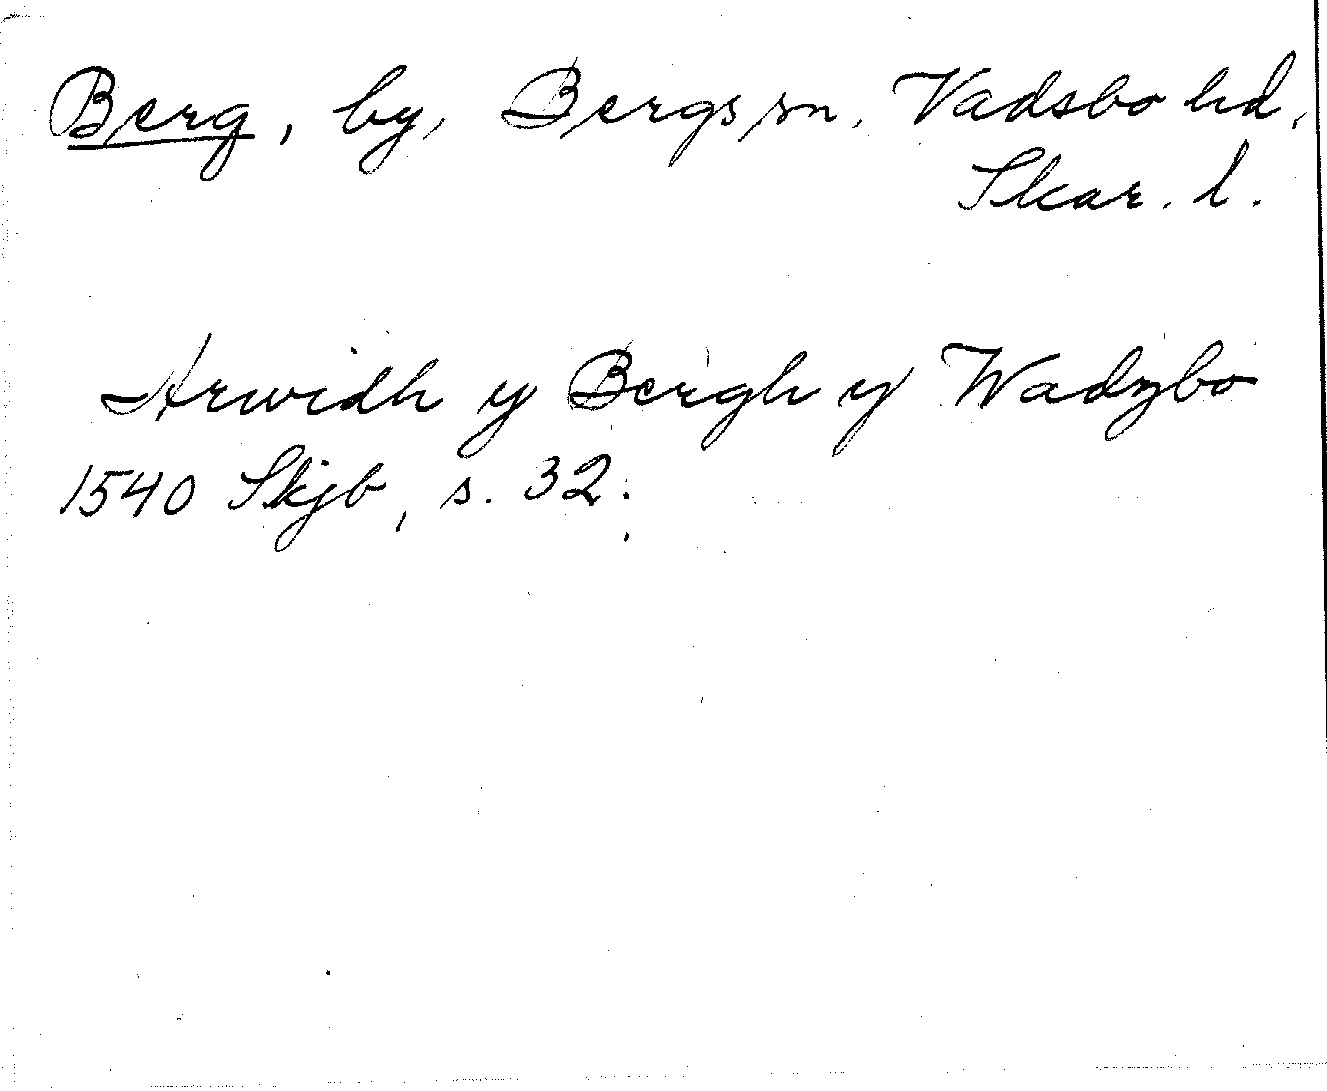 Berg, by, Bergs sn, Vadsbo hd,
Skar. l.
Arwidh y Bergh y Wadzbo
1540 Skjb, s. 32.